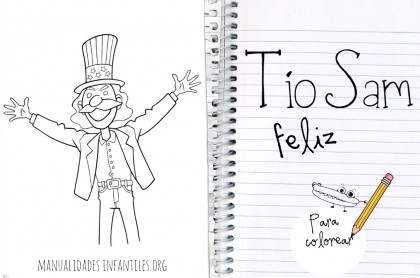 Tío Sam
feliz
Para
colorear
MANUALIDADES INFANTILES.ORG